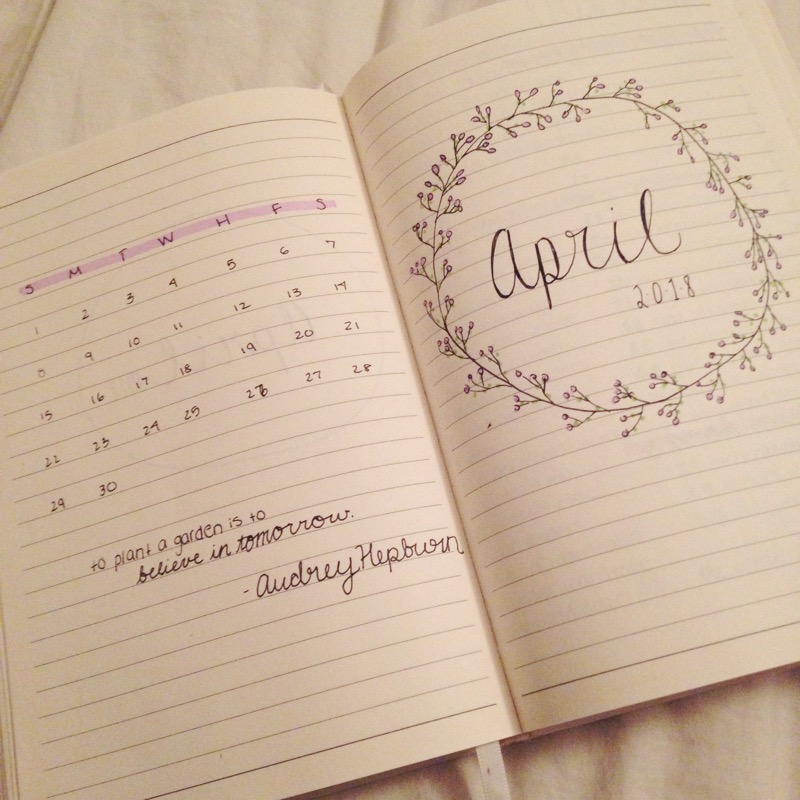 S M T W H F S
1 2 3 4 5 6 7
8 9 10 11 12 13 14
15 16 17 18 19 20 21
22 23 24 25 26 27 28
29 30
to plant a garden is to
believe in tomorrow.
- Audrey Hepburn
April
2018